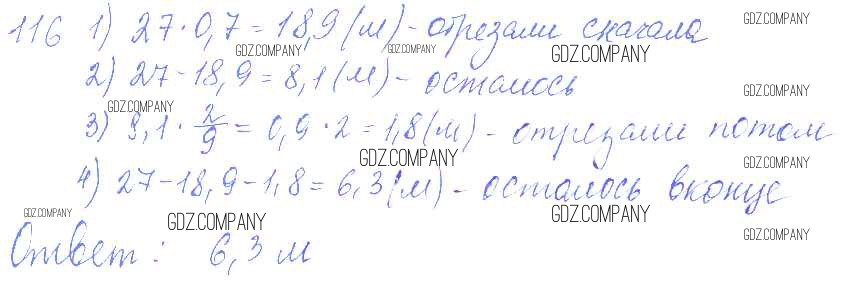 116 1) 27 · 0,7 = 18,9 (м) - отрезали сначала
2) 27 - 18,9 = 8,1 (м) - осталось
3) 8,1 · 2/9 = 0,9 · 2 = 1,8 (м) - отрезали потом
4) 27 - 18,9 - 1,8 = 6,3 (м) - осталось вконце
Ответ: 6,3 м
GDZ.COMPANY
GDZ.COMPANY
GDZ.COMPANY
GDZ.COMPANY
GDZ.COMPANY
GDZ.COMPANY
GDZ.COMPANY
GDZ.COMPANY
GDZ.COMPANY
GDZ.COMPANY
GDZ.COMPANY
GDZ.COMPANY